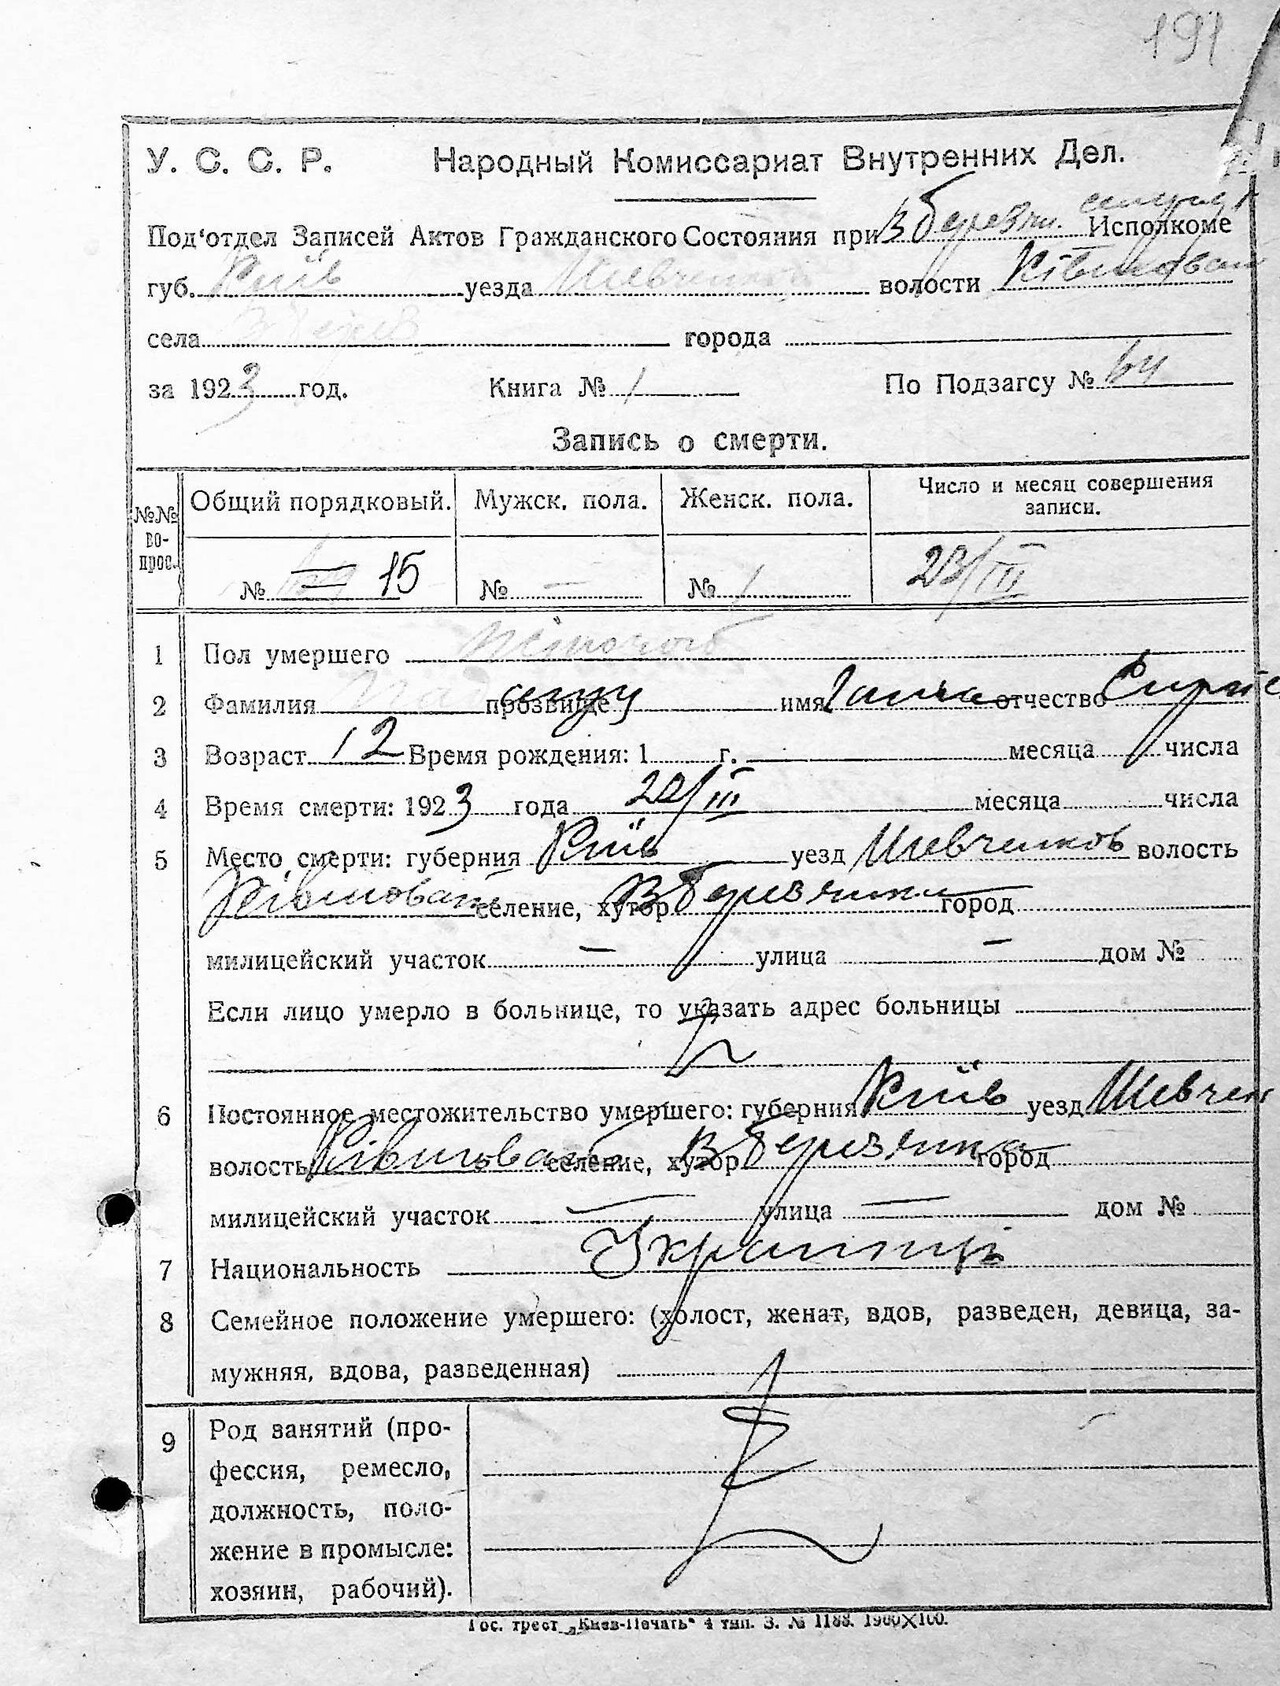 191
У. С. С. Р. Народный Комиссариат Внутренних Дел.
Под'отдел Записей Актов Гражданского Состояния при В Березян. Исполкоме
губ. Київ уезда Шевченків волости
села В Берез города
за 1923 год. Книга № 1 По Подзагсу № 64
Запись о смерти.
№№ вопрос. Общий порядковый. Мужск. пола. Женск. пола. Число и месяц совершения записи.
№ 15 № — № 1 23/III
1 Пол умершего Жіночоі
2 Фамилия прозвище имя Ганна отчество
3 Возраст 12 Время рождения: 1 г. месяца числа
4 Время смерти: 1923 года 20/III месяца числа
5 Место смерти: губерния Київ уезд Шевченков волость
селение, хутор В Березянка город
милицейский участок — улица — дом №
Если лицо умерло в больнице, то указать адрес больницы
6 Постоянное местожительство умершего: губерния Київ уезд Шевчен
волость селение, хутор В Березянка город
милицейский участок — улица — дом №
7 Национальность Украінців
8 Семейное положение умершего: (холост, женат, вдов, разведен, девица, за-
мужняя, вдова, разведенная)
9 Род занятий (про-
фессия, ремесло,
должность, поло-
жение в промысле:
хозяин, рабочий).
Гос. трест „Киев-Печать" 4 тип. З. № 1188. 1900X100.